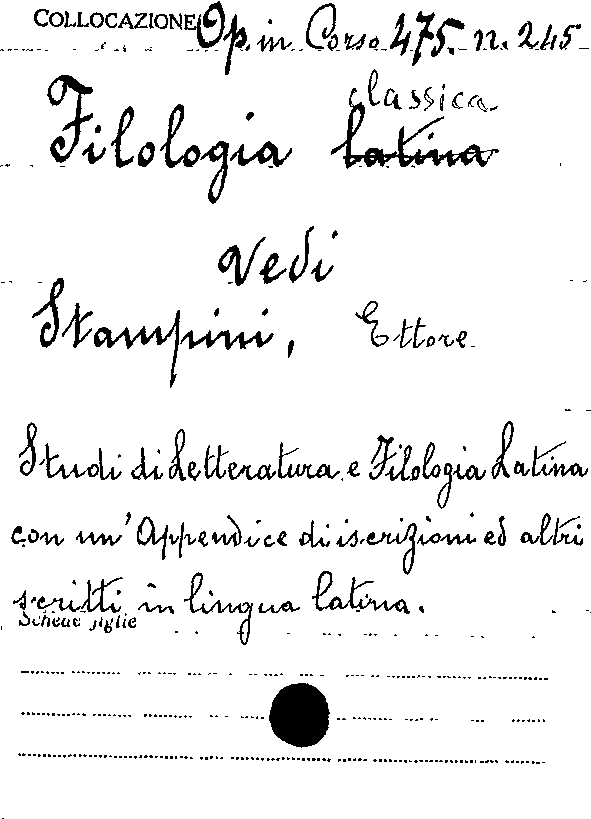 COLLOCAZIONE Op. in Corso 475. n. 245
classica
Filologia latina
vedi
Stampini, Ettore
Studi di Letteratura e Filologia Latina
con un' Appendice di iscrizioni ed altri
scritti in lingua latina.
Schede figlie